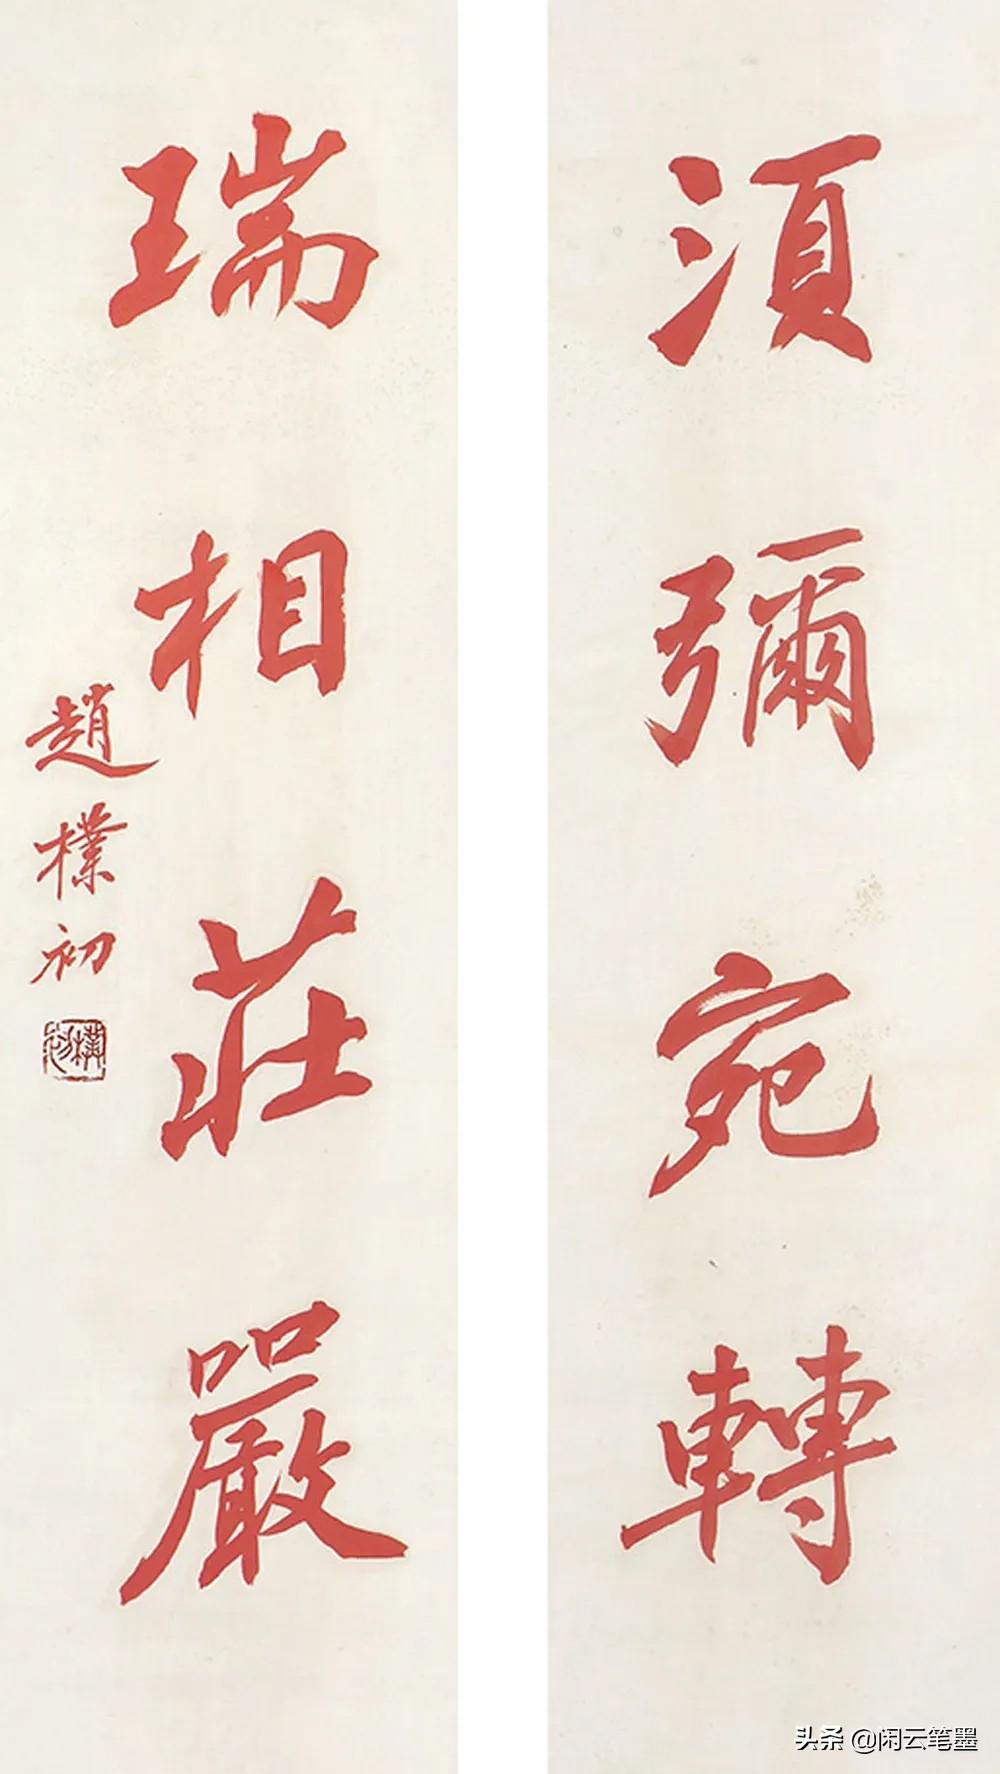 須彌宛轉
瑞相莊嚴
趙樸初
樸初
头条 @闲云笔墨